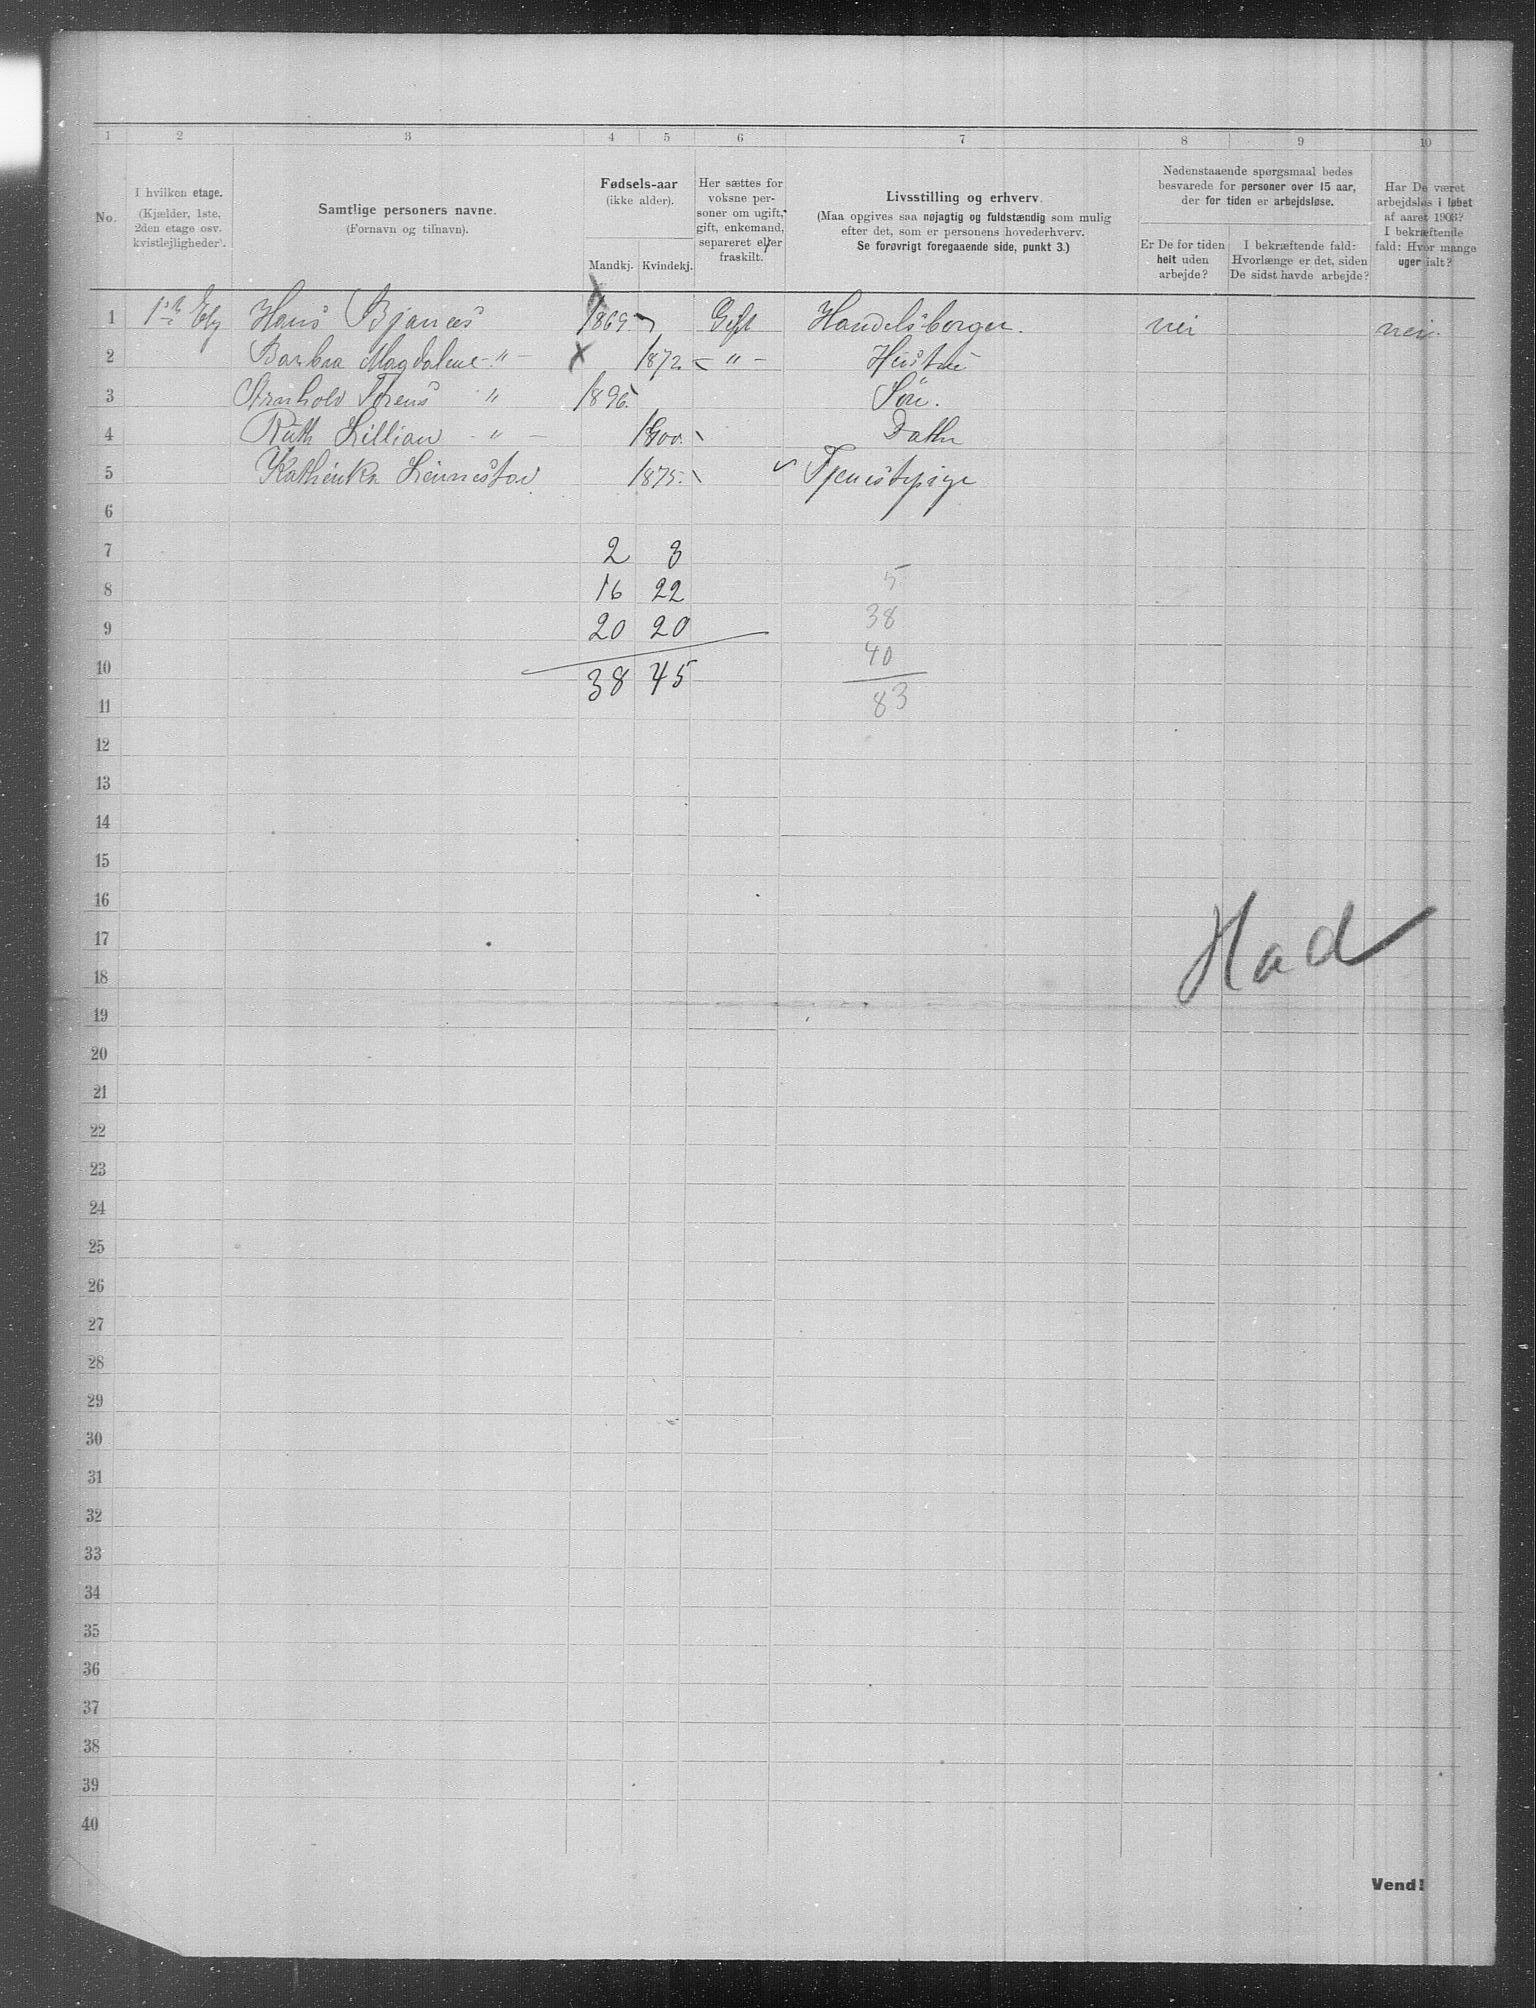 1 2 3 4 5 6 7 8 9 10
No.
I hvilken etage.
(Kjælder, 1ste,
2den etage osv.
kvistlejligheder).
Samtlige personers navne.
(Fornavn og tilnavn).
Fødsels-aar
(ikke alder).
Mandkj. Kvindekj.
Her sættes for
voksne per-
soner om ugift,
gift, enkemand,
separeret eller
fraskilt.
Livsstilling og erhverv.
(Maa opgives saa nøjagtig og fuldstændig som mulig
efter det, som er personens hovederhverv.
Se forøvrigt foregaaende side, punkt 3.)
Nedenstaaende spørgsmaal bedes
besvarede for personer over 15 aar,
der for tiden er arbejdsløse.
Er De for tiden
helt uden
arbejde?
I bekræftende fald:
Hvorlænge er det, siden
De sidst havde arbejde?
Har De været
arbejdsløs i løbet
af aaret 1903?
I bekræftende
fald: Hvor mange
uger ialt?
1 1ste Etg Hans Bjanes 1869 Gift Handelsborger. nei nei.
2 Barbra Magdalene - " - x 1872 - " - Hustru
3 Arnhold Torens " 1896. Sön.
4 Ruth Lillian - " - 1900. Datter
5 Kathinka 1875. Tjenestepige
6
7 2 3
8 16 22 5
9 20 20 38
10 38 45 40
11 83
12
13
14
15
16
17 Had
18
19
20
21
22
23
24
25
26
27
28
29
30
31
32
33
34
35
36
37
38
39
40
Vend!